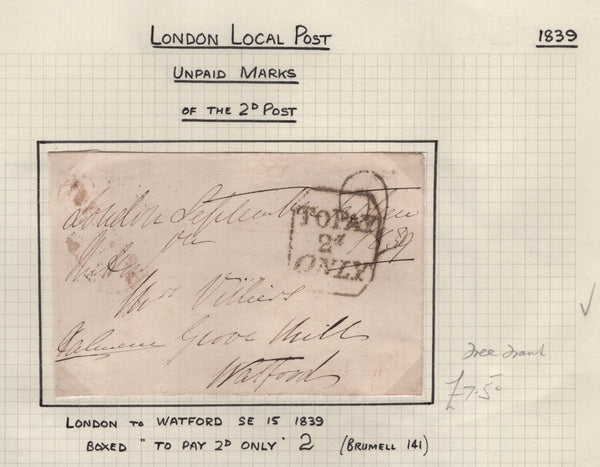 LONDON LOCAL POST
1839
UNPAID MARKS
OF THE 2D POST
London September
1839
TO PAY
2d
ONLY
2
Mrs Villiers
Grove Mill
Watford
Free Frank
£7.50
LONDON TO WATFORD SE 15 1839
BOXED "TO PAY 2D ONLY" 2 (BRUMELL 141)